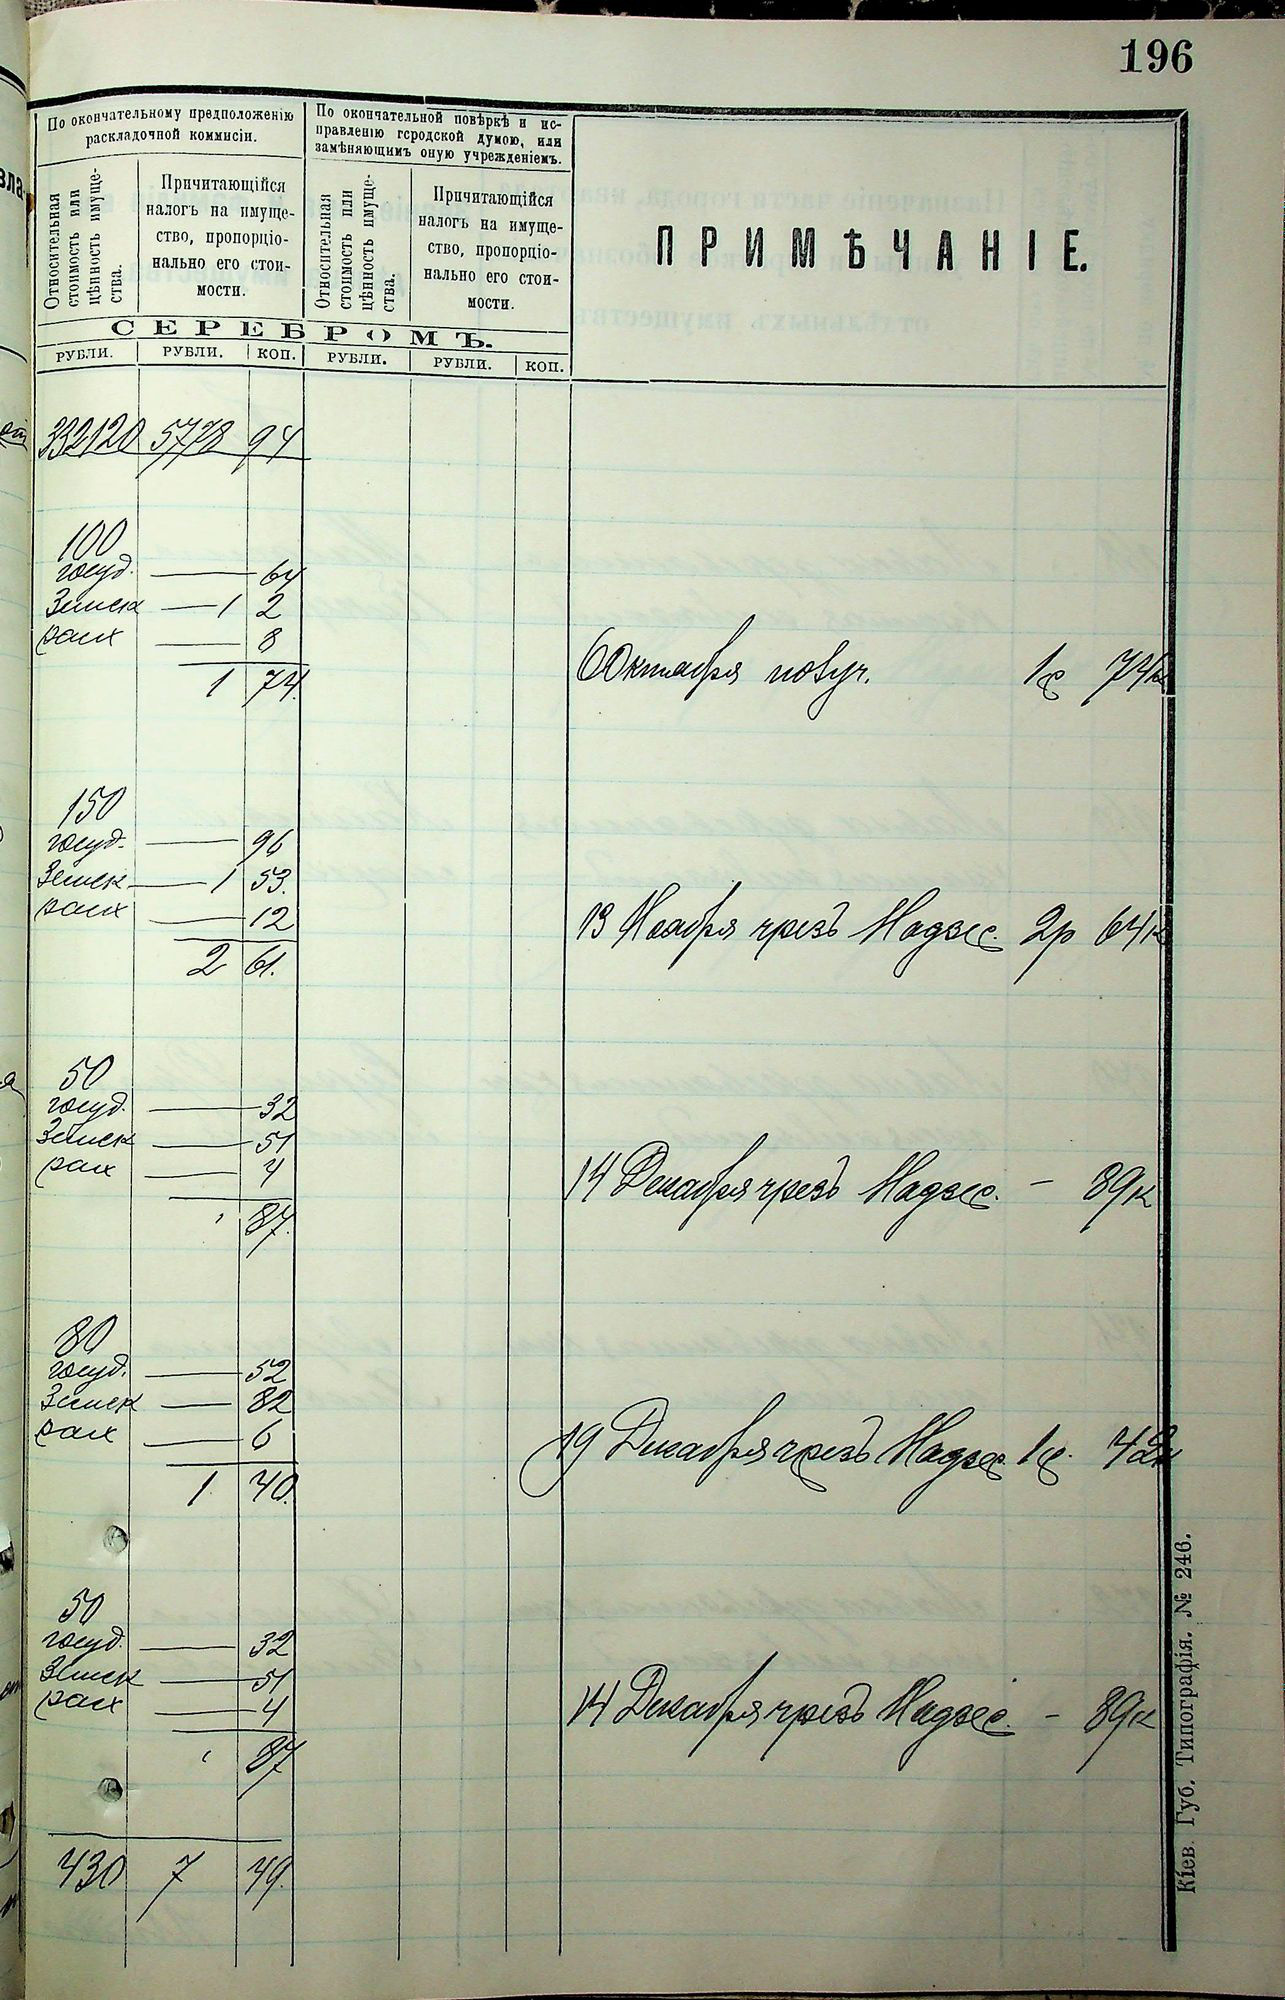 196
По окончательному предположенію
раскладочной коммисіи.
По окончательной повѣркѣ и ис-
правленію гсродской думою, или
замѣняющимъ оную учрежденіемъ.
Относительная
стоимость или
цѣнность имуще-
ства.
Причитающійся
налогъ на имуще-
ство, пропорціо-
нально его стои-
мости.
Относительная
стоимость или
цѣнность имуще-
ства.
Причитающійся
налогъ на имуще-
ство, пропорціо-
нально его стои-
мости.
ПРИМѢЧАНІЕ.
СЕРЕБРОМЪ.
РУБЛИ. РУБЛИ. КОП. РУБЛИ. РУБЛИ. КОП.
332120 5778 94
100
госуд. — 64
Земск — 1 2
— 8
1 74.
6 Октября 1р 74к
150
госуд. — 96
Земск — 1 53.
— 12
2 61.
13 Ноября чрезъ Надзс. 2р 64к
50
госуд. — 32
Земск — 51
— 4
87.
14 Декабря чрезъ Надзс. — 89к
80
госуд. — 52
Земск — 82
— 6
1. 40.
19 Декабря чрезъ Надзс. 1р. 42к
50
госуд. — 32
Земск — 51
— 4
87
14 Декабря чрезъ Надзс. — 89к
430 7 49.
Кіев. Губ. Типографія. № 246.